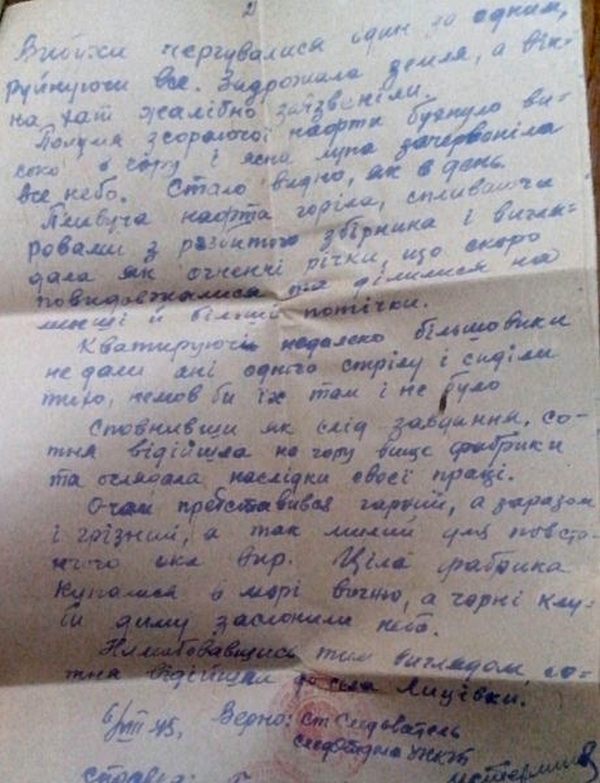 2
Вибухи чергувалися один за одним,
руйнуючи все. Задрожала земля, а вік-
на хат жалібно задзвеніли.
Полумя згораючої нафти бухнуло ви-
соко в гору і ясна луна зачервоніла
все небо. Стало видно, як в день.
Пливуча нафта горіла, спливаючи
ровами з розбитого збірника і вигля-
дала як огненні річки, що скоро
повидовжалися та ділилися на
менші й більші потічки.
Кватируючі недалеко більшовики
не дали ані одного стрілу і сиділи
тихо, немов би їх там і не було
Сповнивши як слід завдання, со-
тня відійшла на гору вище фабрики
та оглядала наслідки своєї праці.
Очам представився гарний, а заразом
і грізний, а так милий для повста-
нчого ока вир. Ціла фабрика
купалася в морі вогню, а чорні клу-
би диму заслонили небо.
Налюбовавшись тим виглядом, со-
тня відійшла до села Лицівки.
6/VIII 45. Верно: ст Следователь
следотдела УНКГБ
справка: